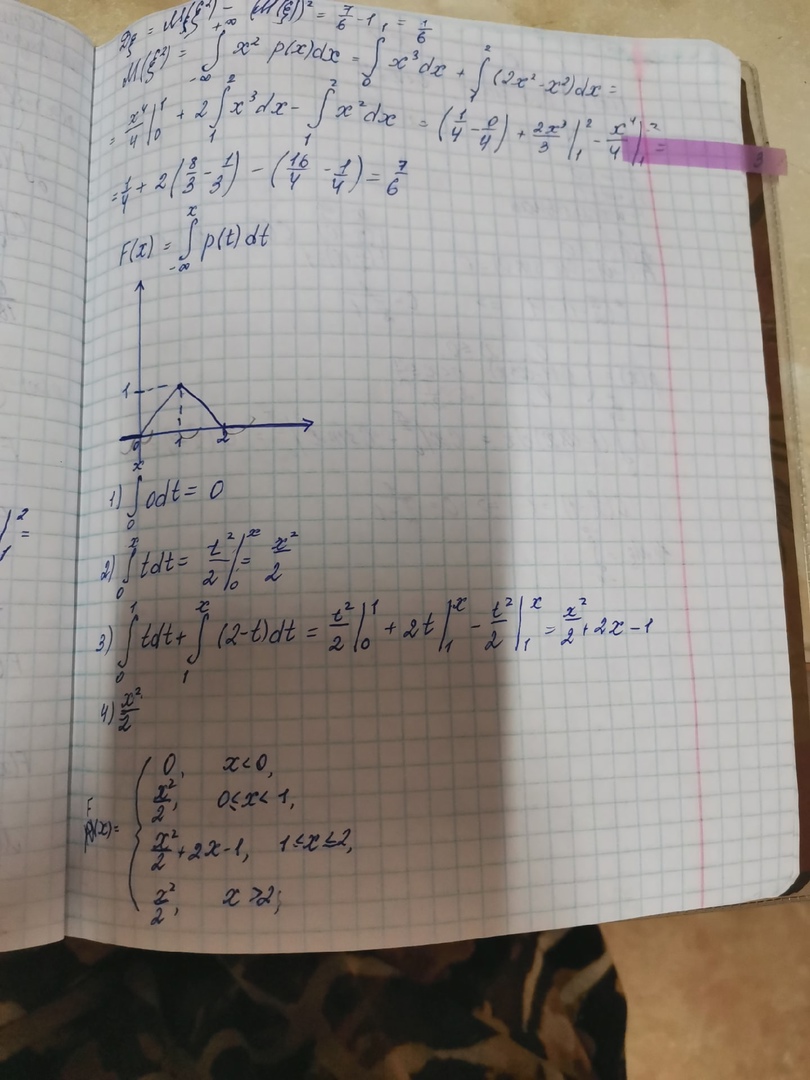 Dξ = M(ξ²) - (M(ξ))² = 7/6 - 1 = 1/6
M(ξ²) = ∫_{-∞}^{+∞} x² p(x)dx = ∫_0^1 x³dx + ∫_1^2 (2x²-x³)dx =
= x⁴/4 |_0^1 + 2∫_1^2 x³dx - ∫_1^2 x²dx = (1/4 - 0/4) + 2x³/3 |_1^2 - x⁴/4 |_1^2 =
= 1/4 + 2(8/3 - 1/3) - (16/4 - 1/4) = 7/6
F(x) = ∫_{-∞}^x p(t)dt
1
0 1 2
1) ∫_0^x 0dt = 0
2) ∫_0^x tdt = t²/2 |_0^x = x²/2
3) ∫_0^1 tdt + ∫_1^x (2-t)dt = t²/2 |_0^1 + 2t |_1^x - t²/2 |_1^x = x²/2 + 2x - 1
4) x²/2
F(x) = { 0, x<0,
x²/2, 0≤x<1,
x²/2 + 2x - 1, 1≤x≤2,
x²/2, x>2;
|_1^2 =